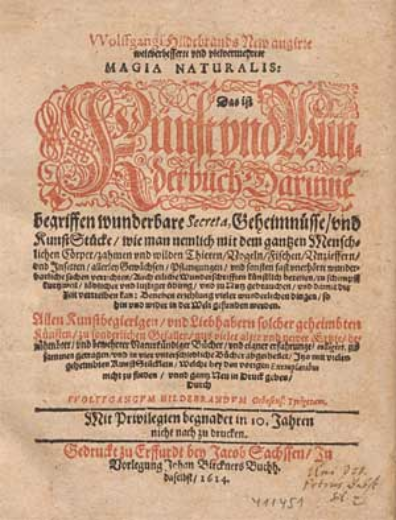 Wolffgangi Hildebrands New augirte
weltverbesserte vnd vielvermehrte
MAGIA NATURALIS:
Das ist
Kunst vnd Wun-
derbuch Darinne
begriffen wunderbare Secreta, Geheimnüsse/ vnd
KunstStücke/ wie man nemlich mit dem gantzen Mensch-
lichen Cörper/ zahmen vnd wilden Thieren/ Vogeln/ Fischen/ Vnziefern/
vnd Insecten/ allerley Gewächsen/ Pflantzungen/ vnd sonsten fast vnerhörte wunder-
Kurtzweil/ löblicher vnd lustiger übung/ vnd zu Nutz gebrauchen/ vnd damit die
Zeit vertreiben kan: Beneben erzehlung vieler wunderlichen dingen/ so
hin vnd wider in der Welt gefunden werden.
Allen Kunstbegierigen/ vnd Liebhabern solcher geheimbten
Künsten/ zu sonderlichen Gefallen/ aus vieler alter vnd newer Ertzte/ be-
rühmbter/ vnd bewehrter Naturkündiger Bücher/ vnd eigner erfahrung/
sammen getragen/ vnd in vier vnterschiedliche Bücher abgetheilet/ Itzo mit vielen
geheimbten KunstStücklein/ Welche bey den vorigen Exemplarien
nicht zu finden/ vnd gantz New in Druck geben/
Durch
WOLFFGANGVM HILDEBRANDVM
Mit Privilegien begnadet in 10. Jahren
nicht nach zu drucken.
Gedruckt zu Erffurdt bey Jacob Sachssen/ In
Vorlegung Johan Birckners Buchh.
daselbst/ 1614.
411451